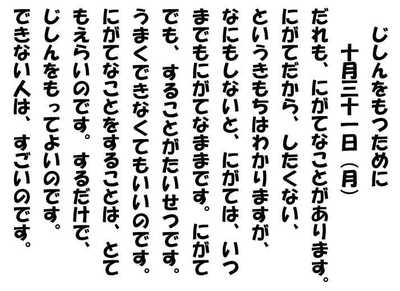 じしんをもつために
十月三十一日（月）
だれも、にがてなことがあります。
にがてだから、したくない、
というきもちはわかりますが、
なにもしないと、にがては、いつ
までもにがてなままです。にがて
でも、することがたいせつです。
うまくできなくてもいいのです。
にがてなことをすることは、とて
もえらいのです。するだけで、
じしんをもってよいのです。
できない人は、すごいのです。